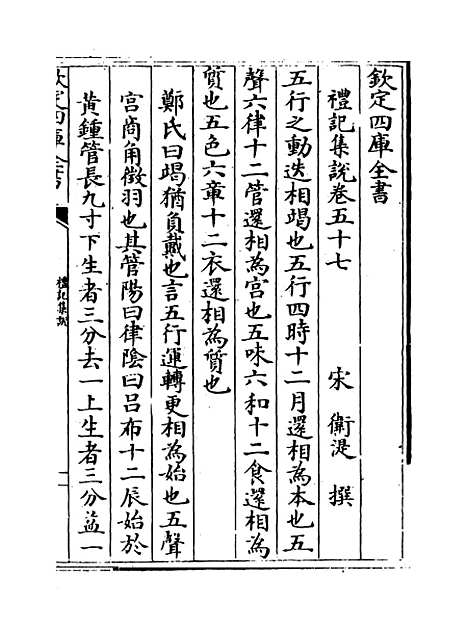 欽定四庫全書
禮記集說卷五十七
宋 衛湜 撰
五行之動迭相竭也五行四時十二月還相為本也五
聲六律十二管還相為宮也五味六和十二食還相為
質也五色六章十二衣還相為質也
鄭氏曰竭猶負戴也言五行運轉更相為始也五聲
宮商角徵羽也其管陽曰律陰曰呂布十二辰始於
黃鍾管長九寸下生者三分去一上生者三分益一
欽定四庫全書
禮記集說